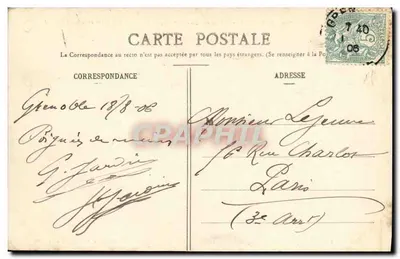 CARTE POSTALE
La Correspondance au recto n'est pas acceptée par tous les pays étrangers. (Se renseigner à la
CORRESPONDANCE
ADRESSE
7 40
06
Grenoble 18/8-06
Poignée de mains
G. Jardin
Monsieur Lejeune
16 Rue Charlot
Paris
(3e Arrt)
CPAPHIL